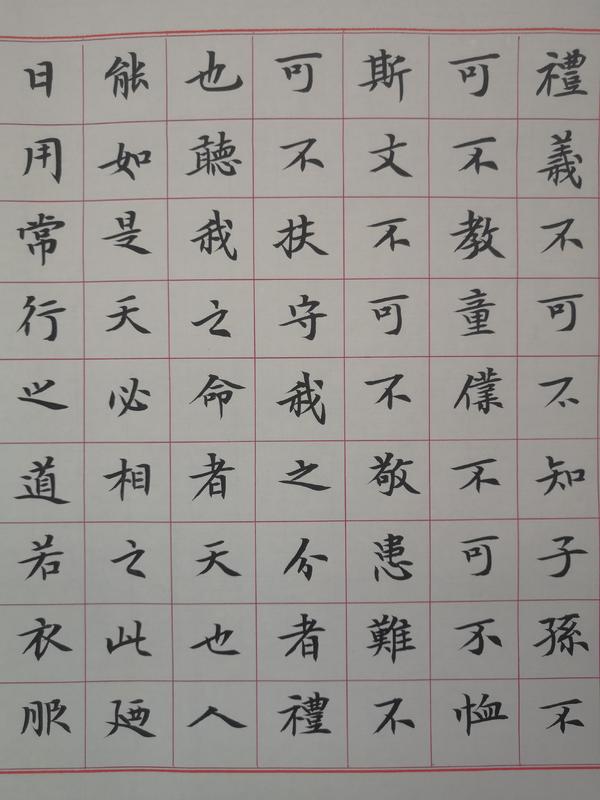 禮義不可不知子孫不
可不教童僕不可不恤
斯文不可不敬患難不
可不扶守我之分者禮
也聽我之命者天也人
能如是天必相之此廼
日用常行之道若衣服